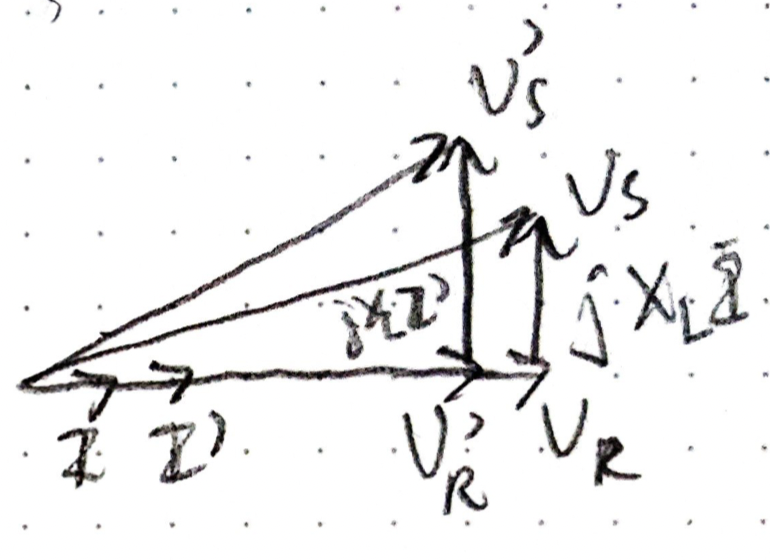 V's
Vs
jX_L I'
jX_L I
I I'
V'_R V_R